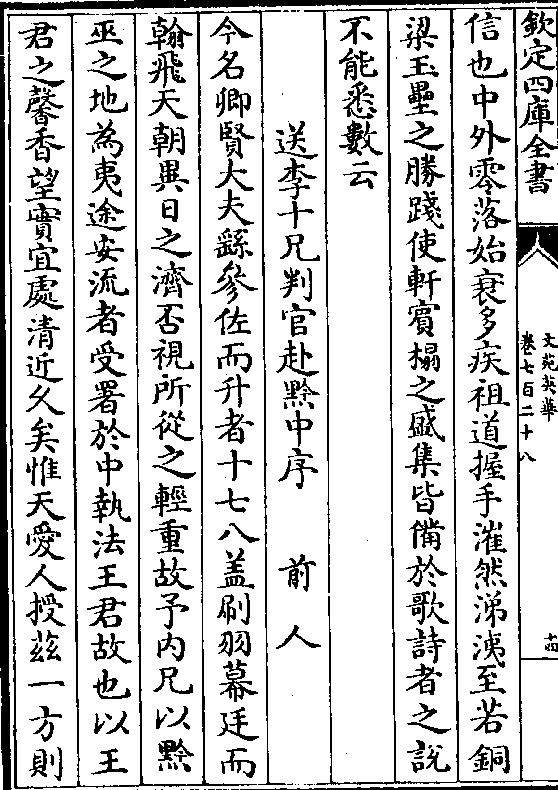 欽定四庫全書
文苑英華
卷七百二十八
十四
信也中外零落始衰多疾祖道握手漼然涕洟至若銅
梁玉壘之勝踐使軒賓榻之盛集皆備於歌詩者之說
不能悉數云
送李十兄判官赴黔中序 前人
今名卿賢大夫繇參佐而升者十七八盖刷羽幕廷而
翰飛天朝異日之濟否視所從之輕重故予内兄以黔
巫之地為夷途安流者受署於中執法王君故也以王
君之馨香望實宜處清近久矣惟天愛人授茲一方則